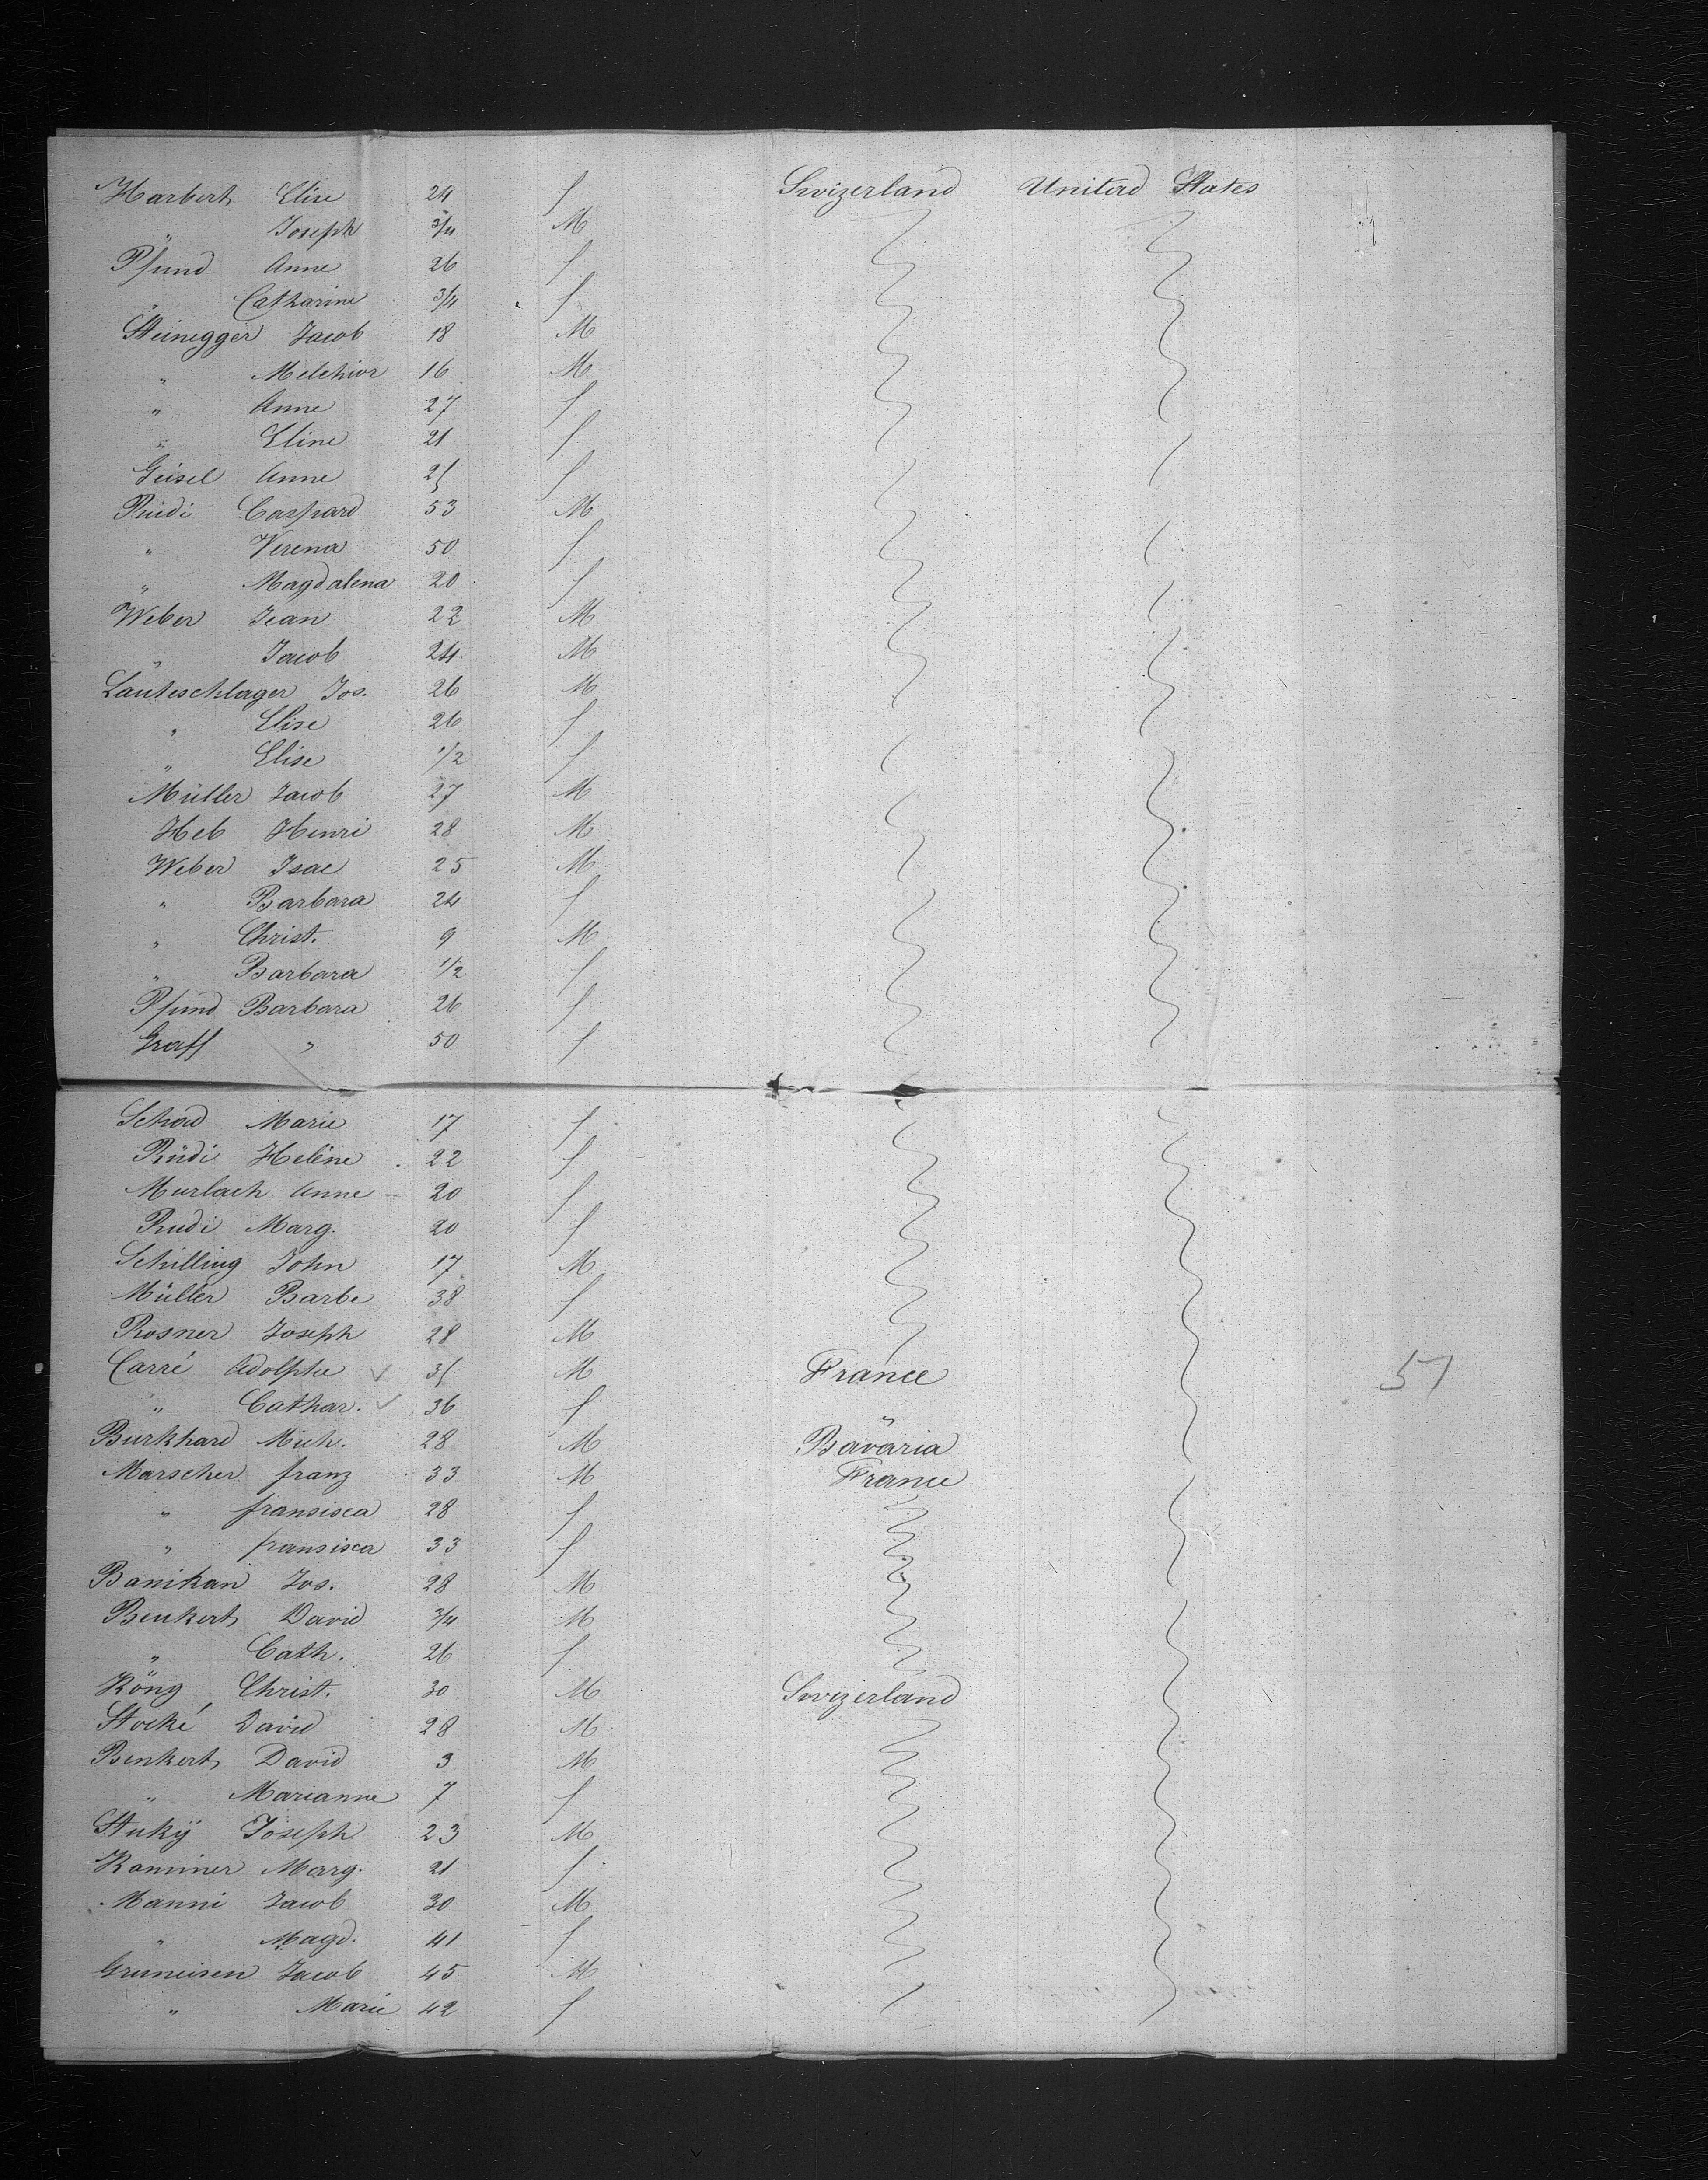 Harbert Elise 24 f Swizerland United States
" Joseph 3/4 M
Pfund Anne 26 f
" Catharine 3/4 f
Steinegger Jacob 18 M
" Melchior 16 M
" Anne 27 f
" Eline 21 f
Geisel Anne 25 f
Rüdi Caspard 53 M
" Verena 50 f
" Magdalena 20 f
Weber Jean 22 M
" Jacob 24 M
Lauteschlager Jos. 26 M
" Elise 26 f
" Elise 1/2 f
Müller Jacob 27 M
Heb Henri 28 M
Weber Isac 25 M
" Barbara 24 f
" Christ. 9 M
" Barbara 1/2 f
Pfund Barbara 26 f
Graff " 50 f
Schad Marie 17 f
Rüdi Heléne 22 f
Murlach Anne 20 f
Rudi Marg. 20 f
Schilling John 17 M
Müller Barbe 38 f
Rosner Joseph 28 M
Carré Adolphe 35 M France 57
" Cathar. 36 f "
Burkhard Mich. 28 M Bavaria
Marscher franz 33 M France
" fransisca 28 f
" fransisca 33 f
Banikan Jos. 28 M
Benkert David 3/4 M
" Cath. 26 f
Köng Christ. 30 M Swizerland
Stocké David 28 M
Benkert David 3 M
" Marianne 7 f
Stukÿ Joseph 23 M
Kaminer Marg. 21 f
Manni Jacob 30 M
" Magd. 41 f
Gruneisen Jacob 45 M
" Marie 42 f